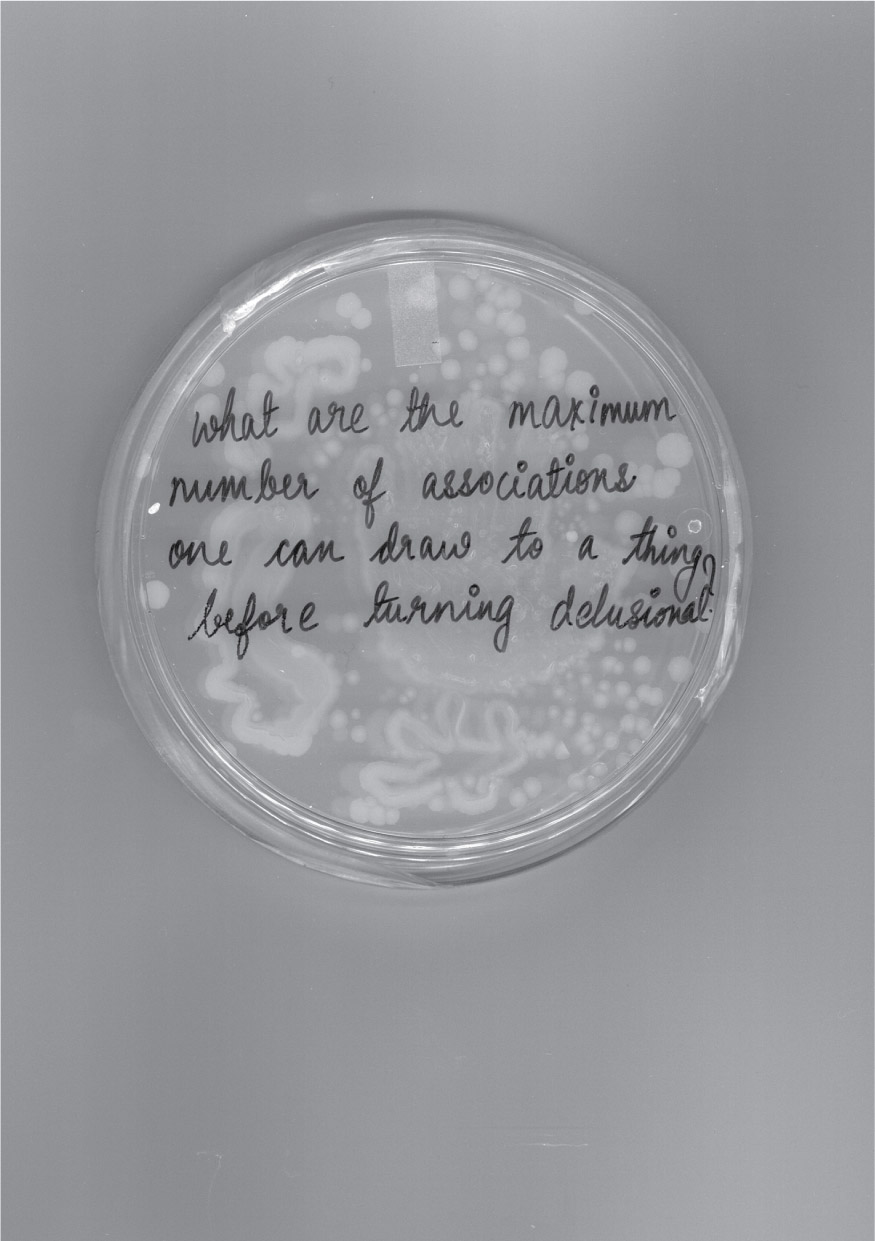 what are the maximum
number of associations
one can draw to a thing
before turning delusional?